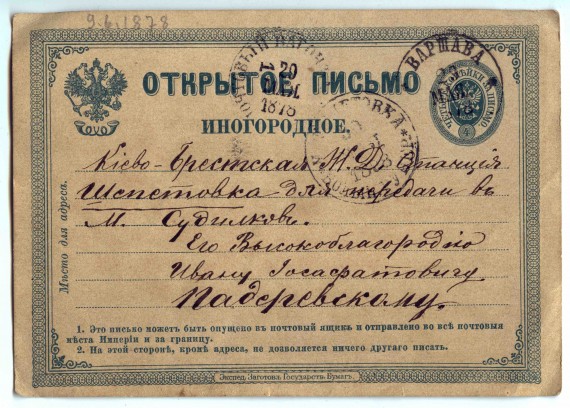 9.6.1878
ВАРШАВА
ОТКРЫТОЕ ПИСЬМО
1878
ИНОГОРОДНОЕ.
Кіево-Брестская Ж. Д. Станція
Шепетовка для передачи въ
М. Судилковъ.
Его Высокоблагородію
Ивану Іосафатовичу
Падеревскому.
Мѣсто для адреса.
1. Это письмо можетъ быть опущено въ почтовый ящикъ и отправлено во всѣ почтовыя
мѣста Имперіи и за границу.
2. На этой сторонѣ, кромѣ адреса, не дозволяется ничего другаго писать.
Экспед. Заготовл. Государств. Бумагъ.